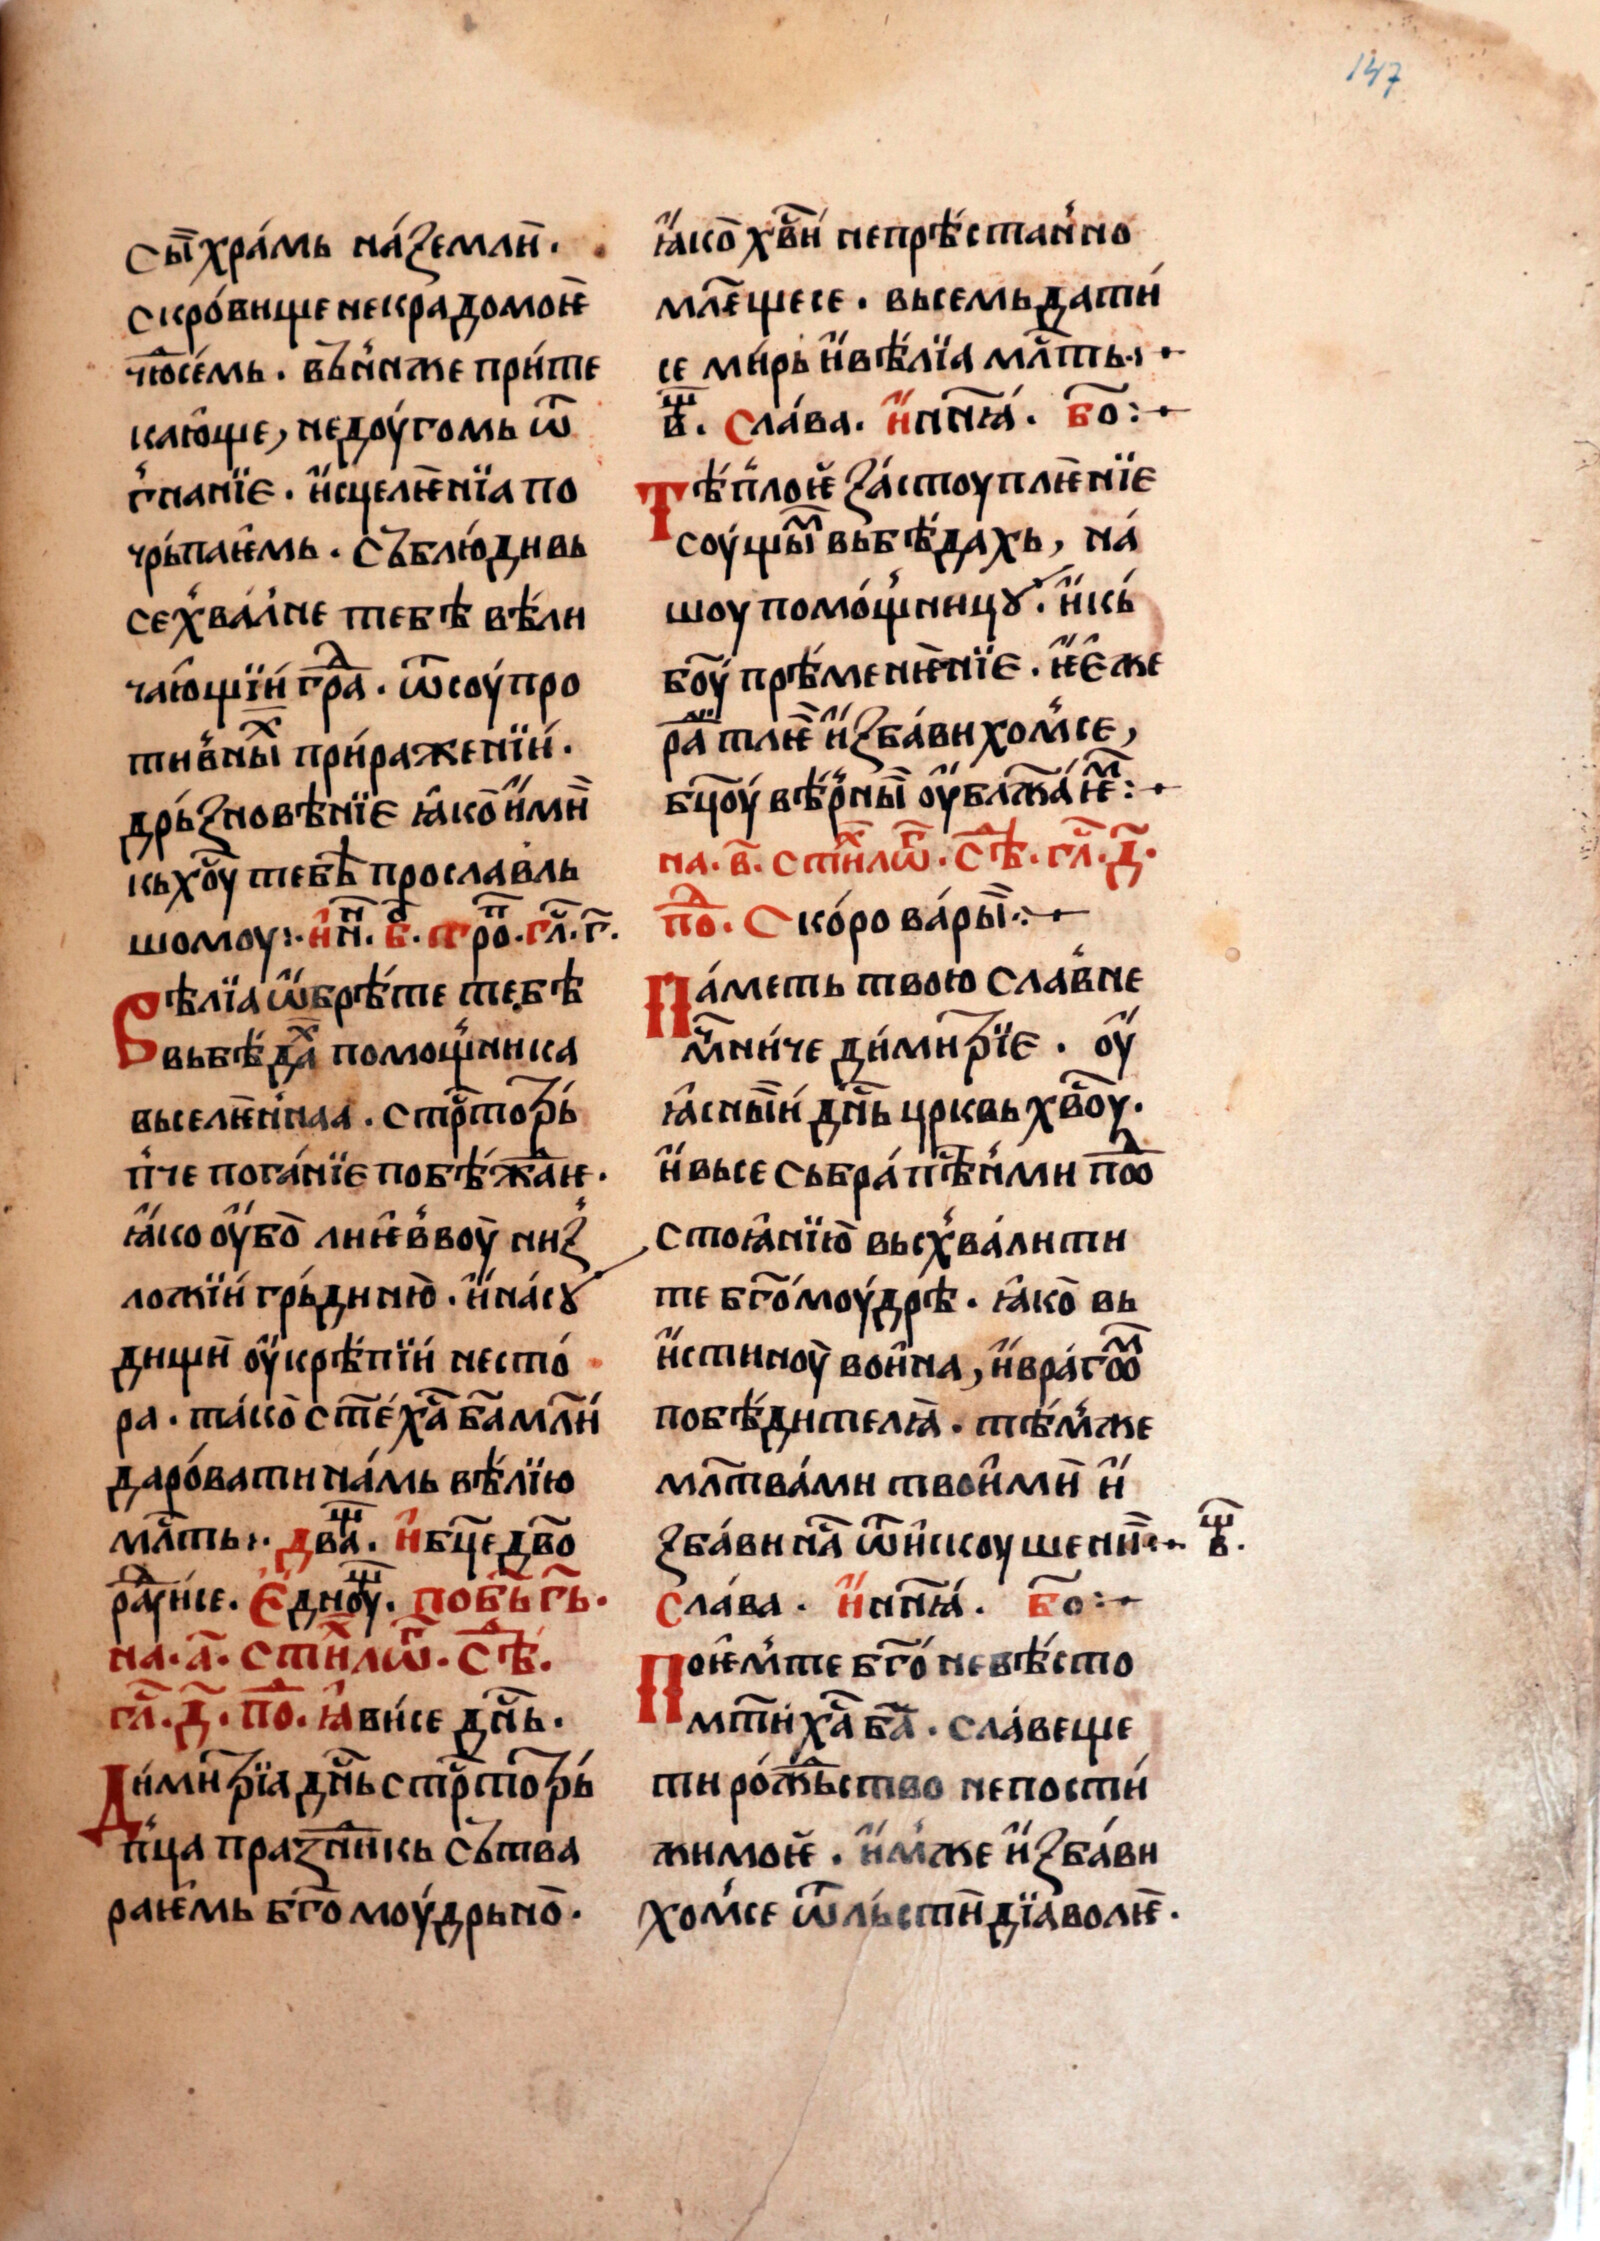 147
сы̑ храмь на́ земли̑.
скро́вище некрадомоѥ
чю̑се́мь. въ н҆ѥмже при́те
каю̑ще, недоу́гомь ѿ
гнанїе. и҆сцелѥ̑нїа по
чрь́паѥ̑мь. съблю́ди вь
се х҆ва́лне тебѣ вѣ́ли
чаю̑щїи гра̑д. ѿ соу́про
тив҆ны̑х при́раженїи.
дрь́зновѣнїе ꙗ҆ко̑ и҆мѝ
кь хо̑у тебѣ̀ прославль
шомоу:. и҆ нн҃. б҃. тро̑п. гл҃. г҃.
Вѣ́лїа ѡ҆брѣ́те тебѣ
вь бѣ́да̑х помо́щ҆ника
вьселѥ̑н҆наа. стр҃тотрь́
п҆че пога́нїе побѣ́жа̑ѥ.
ꙗ҆ко оу҆бо̀ лиѥ̑в҆воу̀ низ҆
ложїи грь́диню̀. и҆ на́сꙋ
дищѝ оу҆крѣ́пїи несто́
ра. та́ко̀ ст҃е ха҃ ба҃ мл҃и
даро́вати на́мь вѣ́лїю
мл҃ть:. два̑щ. и҆ бц҃е дв҃о
ра̑дꙋи́се. Е҆дно̑ущ. по б҃ь г҃ь.
на. а҃. стих̑лѡг. сѣ̑д.
гл҃. д҃. по̑д. ꙗ҆ви́се дн҃ь.
Ди́митрїа дн҃ь стр҃тотрь́
п҆ца праздни́кь сътва
раѥ̑мь бг҃омоу́дрьно̀.
ꙗ҆ко̀ хв҃и непрѣ́стан҆но
мл҃ещесе. вьсемь дати́
се ми́рь и҆ вѣ́лїа мл҃ть:·
в̑щ. слава. и҆ нн҃ꙗ. бо̑:·
Тѣ́п҆лоѥ̀ за́стоуплѥ̑нїе
соу́щы̑м вь бѣ́дахь, на́
шоу помо́щ҆ницꙋ. и҆ кь́
бо҃у прѣ́менѥ̑нїе. ѥ҆ѥ̑же
ра̑ди тлѥ̀ и҆зба́вихом҆се,
бц҃оу вѣ́р҆ны̑ оу҆блажа́ѥ̑м:·
на. в҃. стих̑лѡг. сѣ̑д. гл҃. д҃.
по̑д. Ско́ро ва́ры̀:·
Па́меть твою слав҆не
мч҃ниче ди́митрїе. оу҆
ꙗ҆сны̀и дн҃ь црквь хв҃оу.
и҆ вьсе сьбра́ пѣ̑н҆ми по̑д
стоꙗ̑нїю̀ вьсх҆ва́лити
те бг҃омоу́дрѣ. ꙗ҆ко̀ вь
и҆стиноу̀ воѝна, и҆ враго̑м
побѣ́дителꙗ̀. тѣ́м҆же
мл҃тва́ми твои̑мѝ и҆
зба́ви на̑с ѿ и҆скоушенѝ:· в̑щ.
слава. и҆ нн҃ꙗ. бо̑:·
Поѥ̑м҆те бг҃оневѣ́сто
мт҃и ха҃ ба҃. сла́веще
ти рож҃ьство непости́
жимоѥ̀. и҆м҆же и҆зба́ви
хом҆се ѿ ль́стѝ дїаволѥ̀.